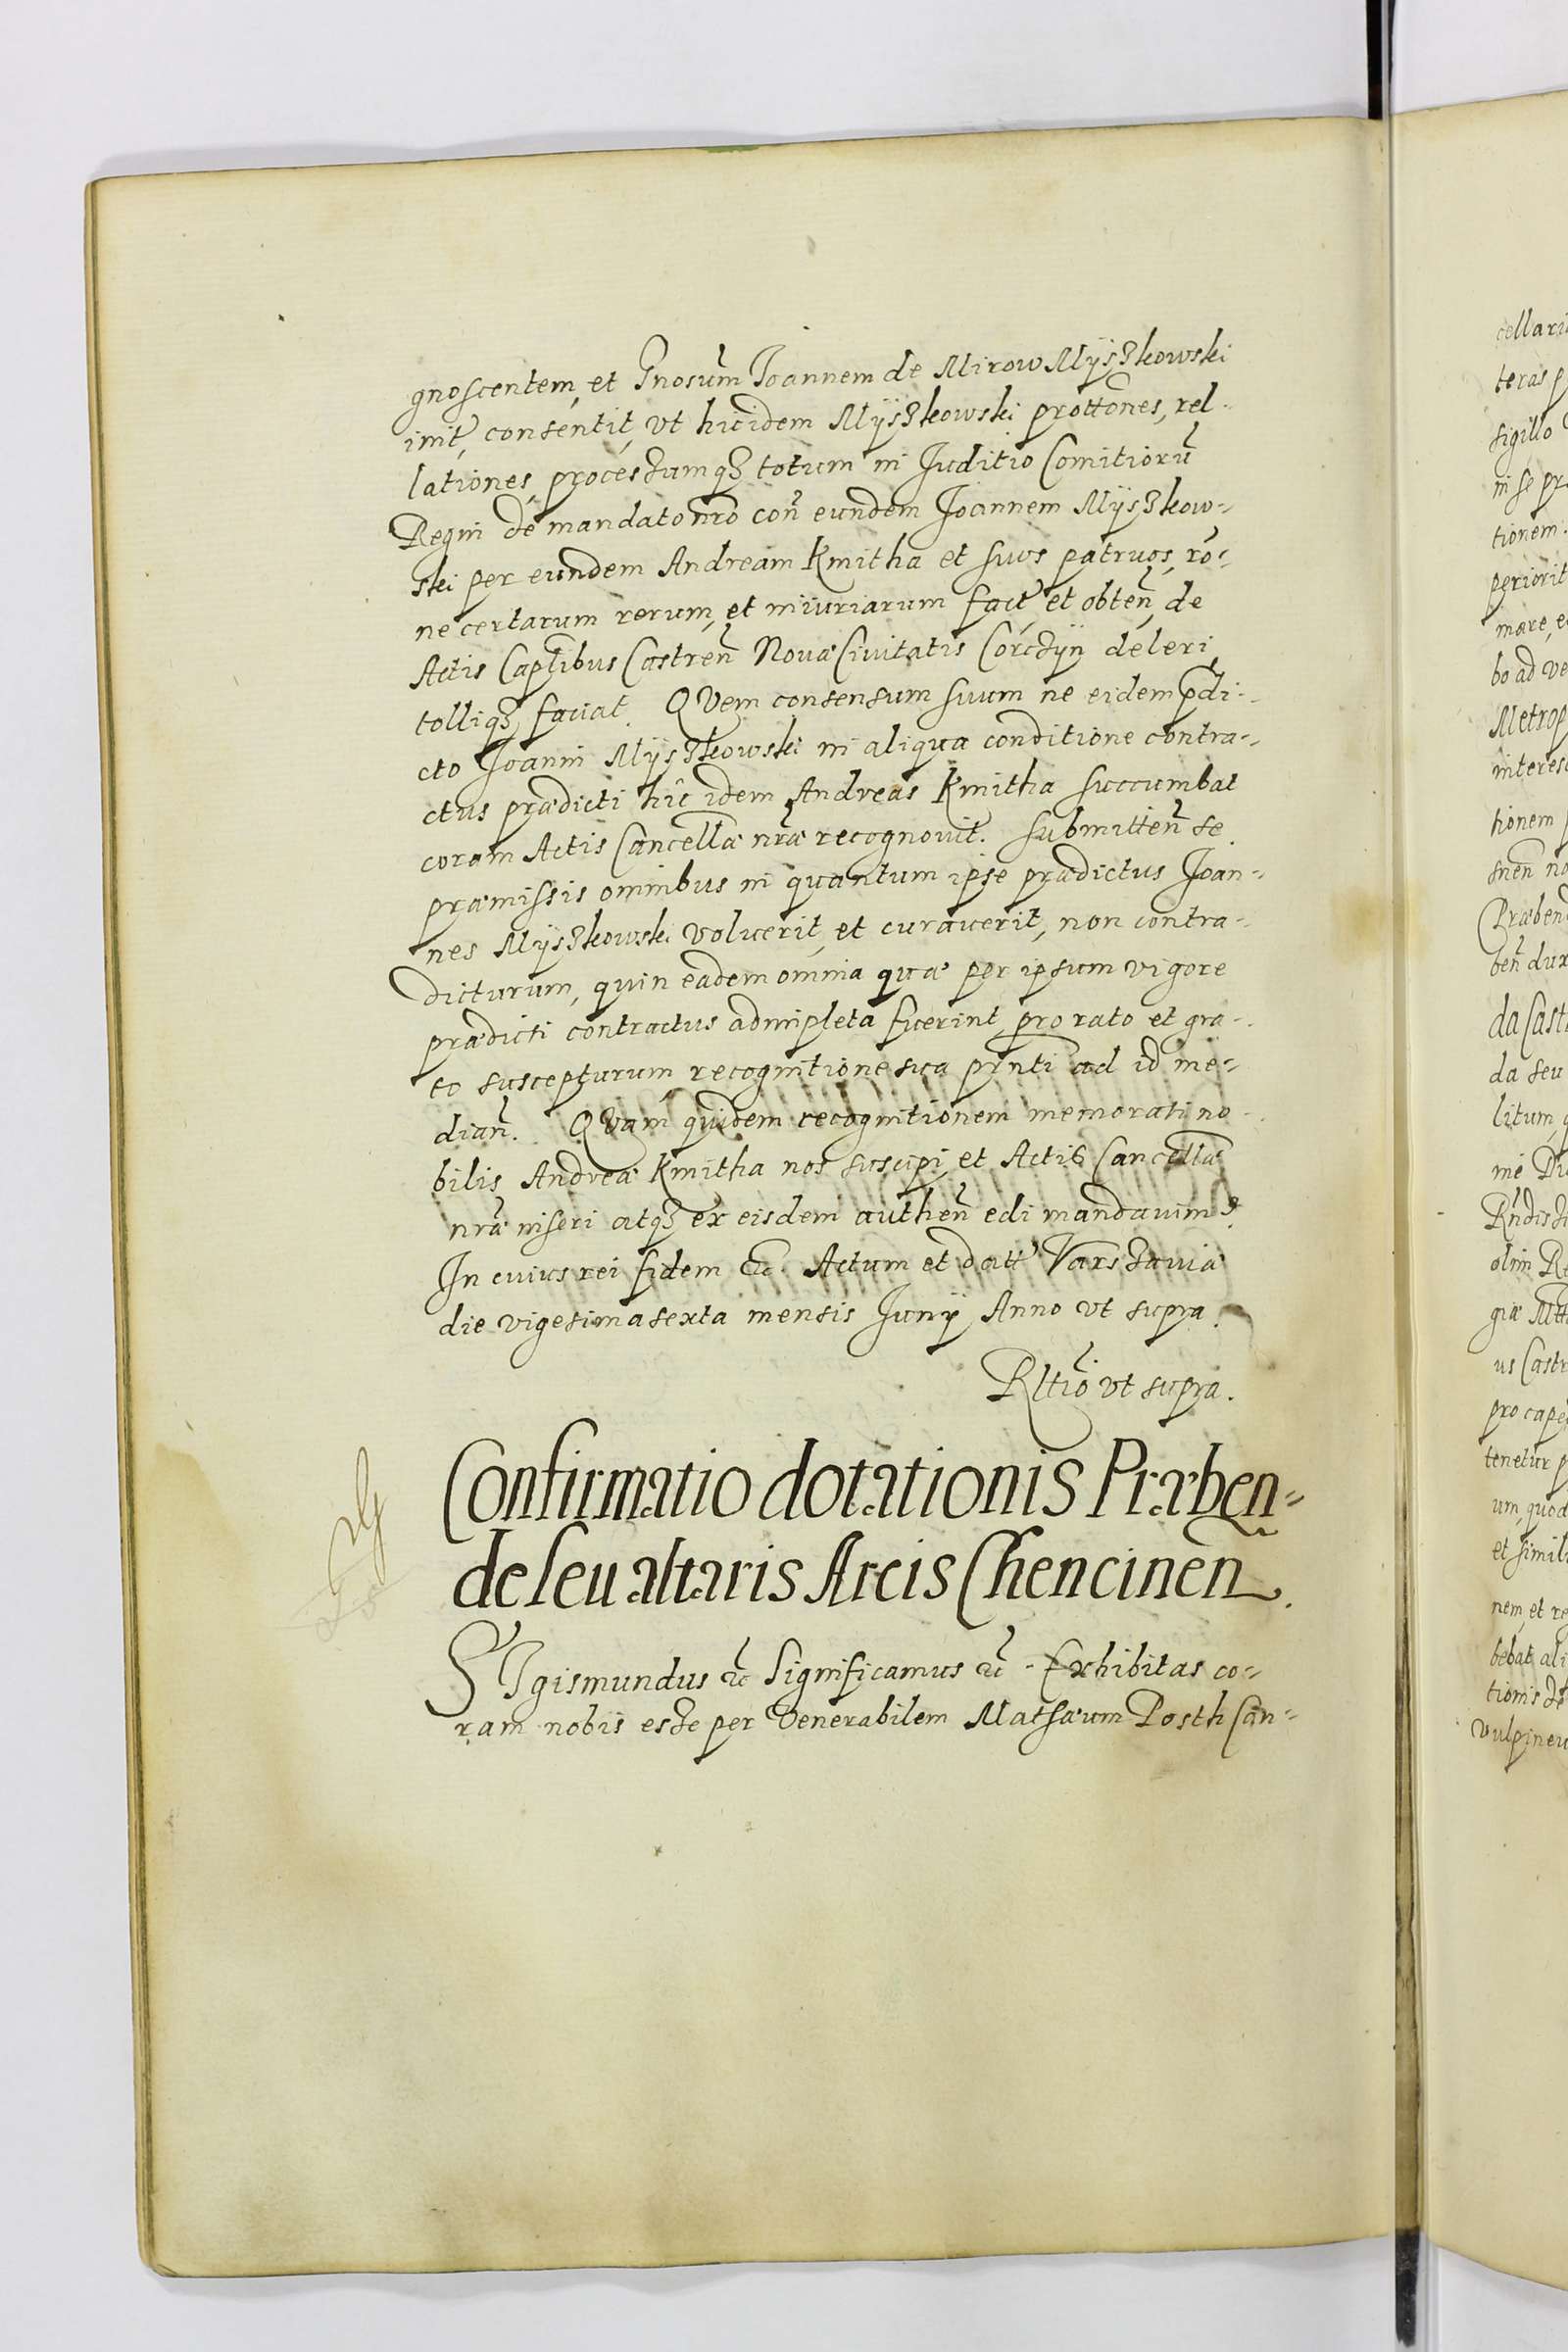 gnoscentem, et Gnosum Joannem de Mirow Myszkowski
init, consentit, vt hic idem Myszkowski prottones, rel-
lationes, processumq3 totum in Juditio Comitiorũ
Regni de mandato nrõ coñ eundem Joannem Myszkow-
ski per eundem Andream Kmitha et suos patruos, rõ-
ne certarum rerum, et iniuriarum fact' et obteñ, de
Actis Capĺibus Castreñ Nouæ Ciuitatis Corczÿn deleri,
tolliq3 faciat. QVem consensum suum ne eidem p̃di-
cto Joanni Myszkowski in aliqua conditione contra-
ctus prædicti hic idem Andreas Kmitha succumbat
coram Actis Cancellæ nr̃æ recognouit. Submitteñ se
præmissis omnibus in quantum ipse prædictus Joan-
nes Myszkowski voluerit, et curauerit, non contra-
dicturum, quin eadem omnia quæ per ipsum vigore
prædicti contractus adimpleta fuerint, pro rato et gra-
to suscepturum, recognitione sua pr̃nti ad id me-
diañ. QVam quidem recognitionem memorati no-
bilis Andreæ Kmitha nos suscipi, et Actis Cancellæ
nr̃æ inseri atq3 ex eisdem autheñ edi mandauim9.
In cuius rei fidem &c. Actum et datt' Varsauiæ
die vigesima sexta mensis Junÿ Anno vt supra.
Rltiõ vt supra.
Confirmatio dotationis Præben-
de seu altaris Arcis Chencineñ.
SIgismundus &c Significamus &c. Exhibitas co-
ram nobis esse per Venerabilem Matheum Posth Can-
cellari
teras p
sigillo
in se pr
tionem.
periorit
mare, e
bo ad ve
Metrop
interes
tionem
sneñ no
Præbend
beñ dux
da Cast
da seu
litum, q
me Di
olim R
giæ Mtt
us Castr
pro cape
tenetur p
um, quod
et simili
nem, et re
bebat, ali
tionis de
Vulpineu